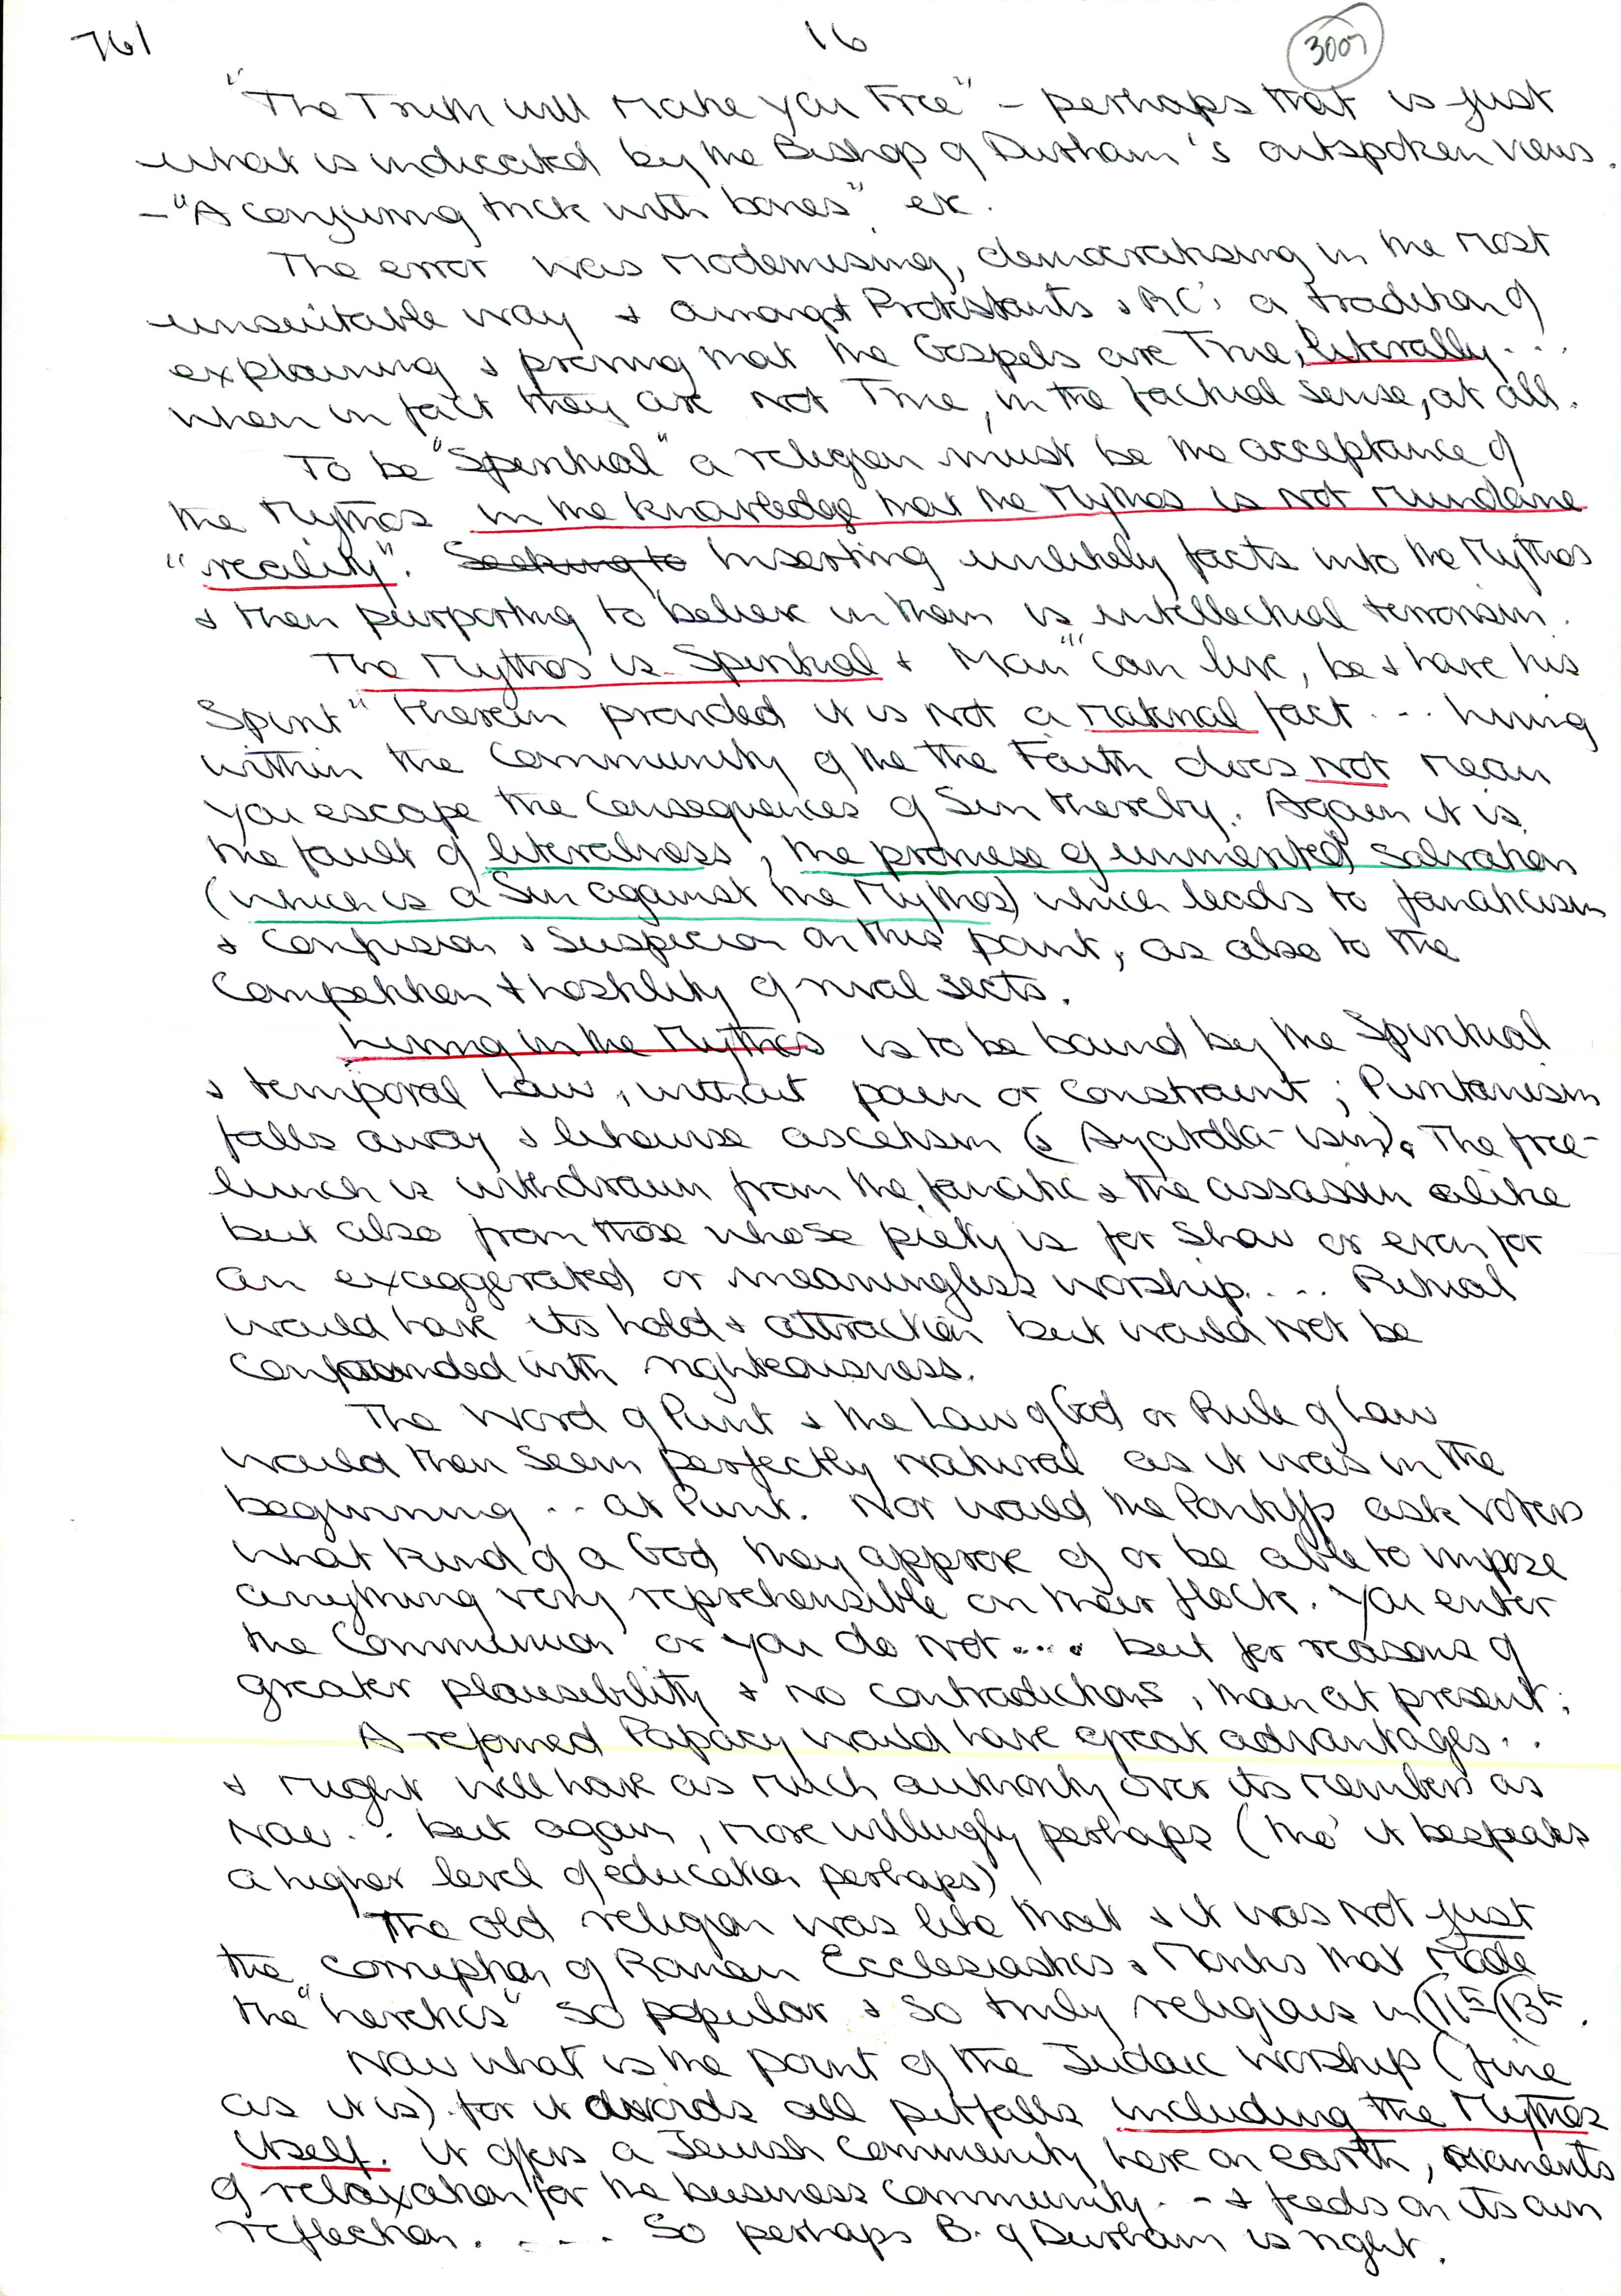 761 16 3007
"The Truth will Make you Free" – perhaps that is just
what is indicated by the Bishop of Durham's outspoken views.
– "A conjuring trick with bones" etc.
The error was Modernising, democratising in the Most
unsuitable way & amongst Protistants & RC's a tradition of
explaining & proving that the Gospels are True, literally...
when in fact they are Not True, in the factual sense, at all.
To be "Spiritual" a religion must be the acceptance of
the Mythos in the knowledge that the Mythos is Not Mundane
"reality". Seeking to Inserting unlikely facts into the Mythos
& then purporting to believe in them is intellectual terrorism.
The Mythos is Spiritual & Man "can live, be & have his
Spirit" therein provided it is Not a Material fact... Living
within the Community of the the Faith does Not Mean
you escape the Consequences of Sin thereby. Again it is
the fault of literalness, the promise of unmerited Salvation
(which is a Sin against the Mythos) which leads to fanaticism
& Confusion & Suspicion on this point, as also to the
Competition & hostility of rival Sects.
Living in the Mythos is to be bound by the Spiritual
& temporal Law, without pain or Constraint; Puritanism
falls away & likewise asceticism (& Ayatolla-ism). The free-
lunch is withdrawn from the fanatic & the assassin alike
but also from those whose piety is for Show or even for
an exaggerated or meaningless worship.... Ritual
would have its hold & attraction but would Not be
Confounded with righteousness.
The Word of Punt & the Law of God or Rule of Law
would then Seem perfectly Natural as it was in the
beginning .. at Punt. Nor would the Pontiffs ask Voters
what kind of a God they approve of or be able to impose
anything very reprehensible on their flock. You enter
the Communion or you do Not.... but for reasons of
greater plausibility & no contradictions, than at present;
A reformed Papacy would have great advantages..
& Might well have as Much authority over its Members as
Now... but again, More willingly perhaps (tho' it bespeaks
a higher level of education perhaps)
The old religion was like that & it was Not just
the corruption of Roman Ecclesiastics & Monks that Made
the "heretics" so popular & so truly religious in C11th C13th.
Now what is the point of the Judaic Worship (fine
as it is). for it avoids all pitfalls including the Mythos
itself. It offers a Jewish Community here on earth, moments
of relaxation for the business Community. - & feeds on its own
reflection. .... So perhaps B. of Durham is right.